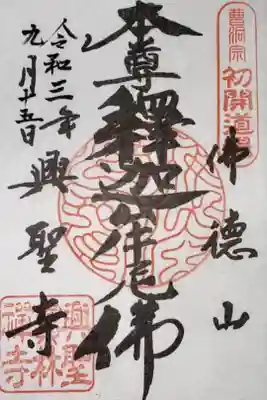 曹洞宗
初開道場
佛德山
本尊釋迦牟尼佛
興聖寺
令和三年
九月十五日
興聖
禅寺